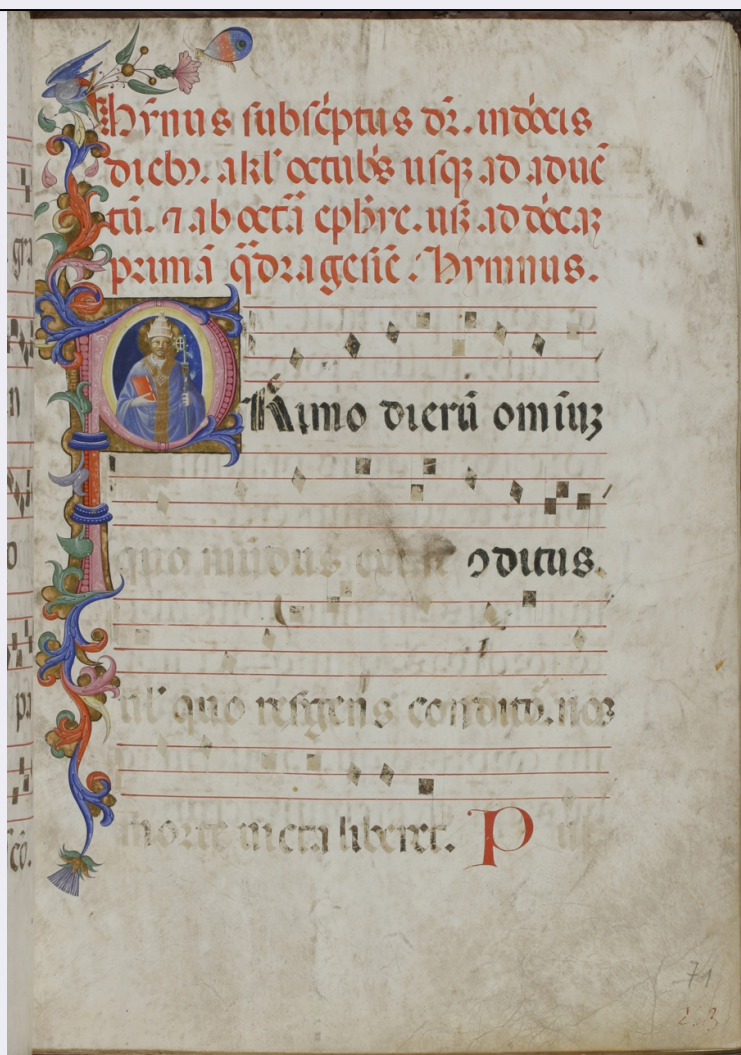 Hȳnus subsc̄ptus dr̄. in dōcis
dieb⁊. a kl' octub's usqꝫ ad aduē
tū. ⁊ ab octā eph̄ie. usꝫ ad dōcaꝫ
primā q̄dragesiē. Hymnus.
PRimo dierū omīuꝫ
quo mūdus extat ꝯditus.
ul' quo resurgens conditōr. nos
morte uicta liberet. P
71